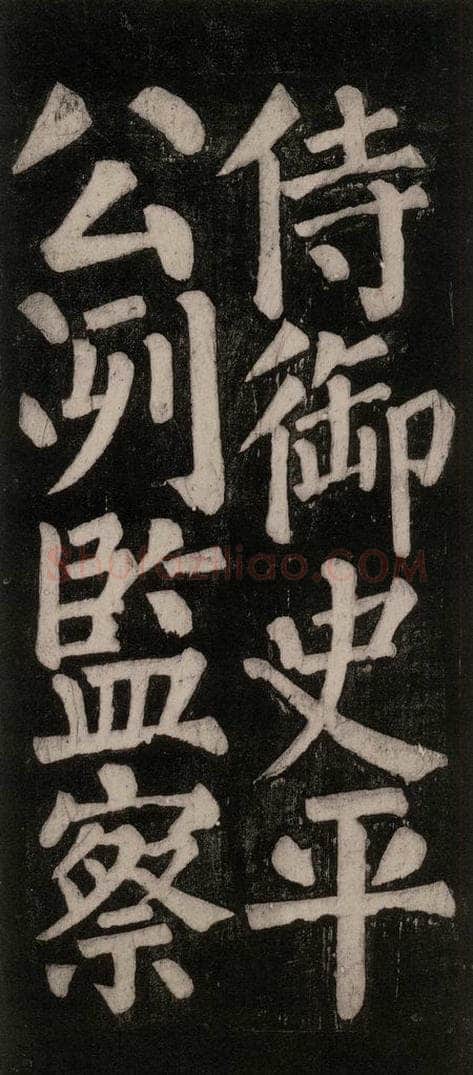 侍御史平
公冽監察
shufaziliao.COM